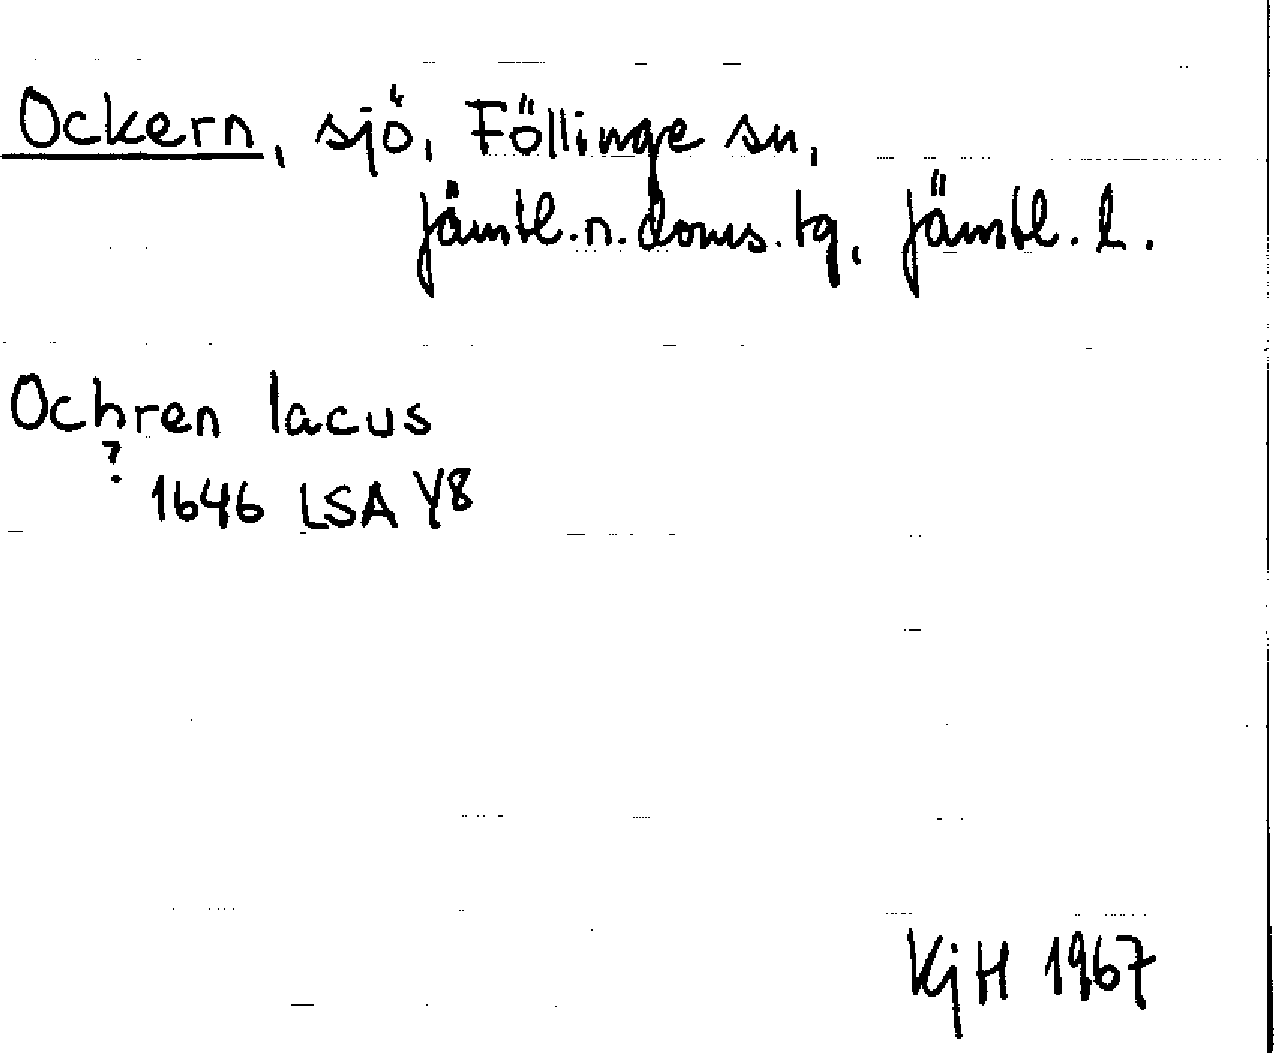 Ockern, sjö, Föllinge sn,
Jämtl. n. doms. tg, Jämtl. l.
Ochren lacus
?
1646 LSA Y8
KjH 1967